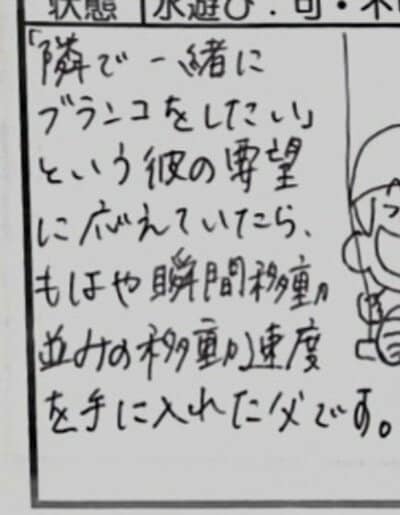 状態 水遊び：可・不
「隣で一緒に
ブランコをしたい」
という彼の要望
に応えていたら、
もはや瞬間移動
並みの移動速度
を手に入れた父です。